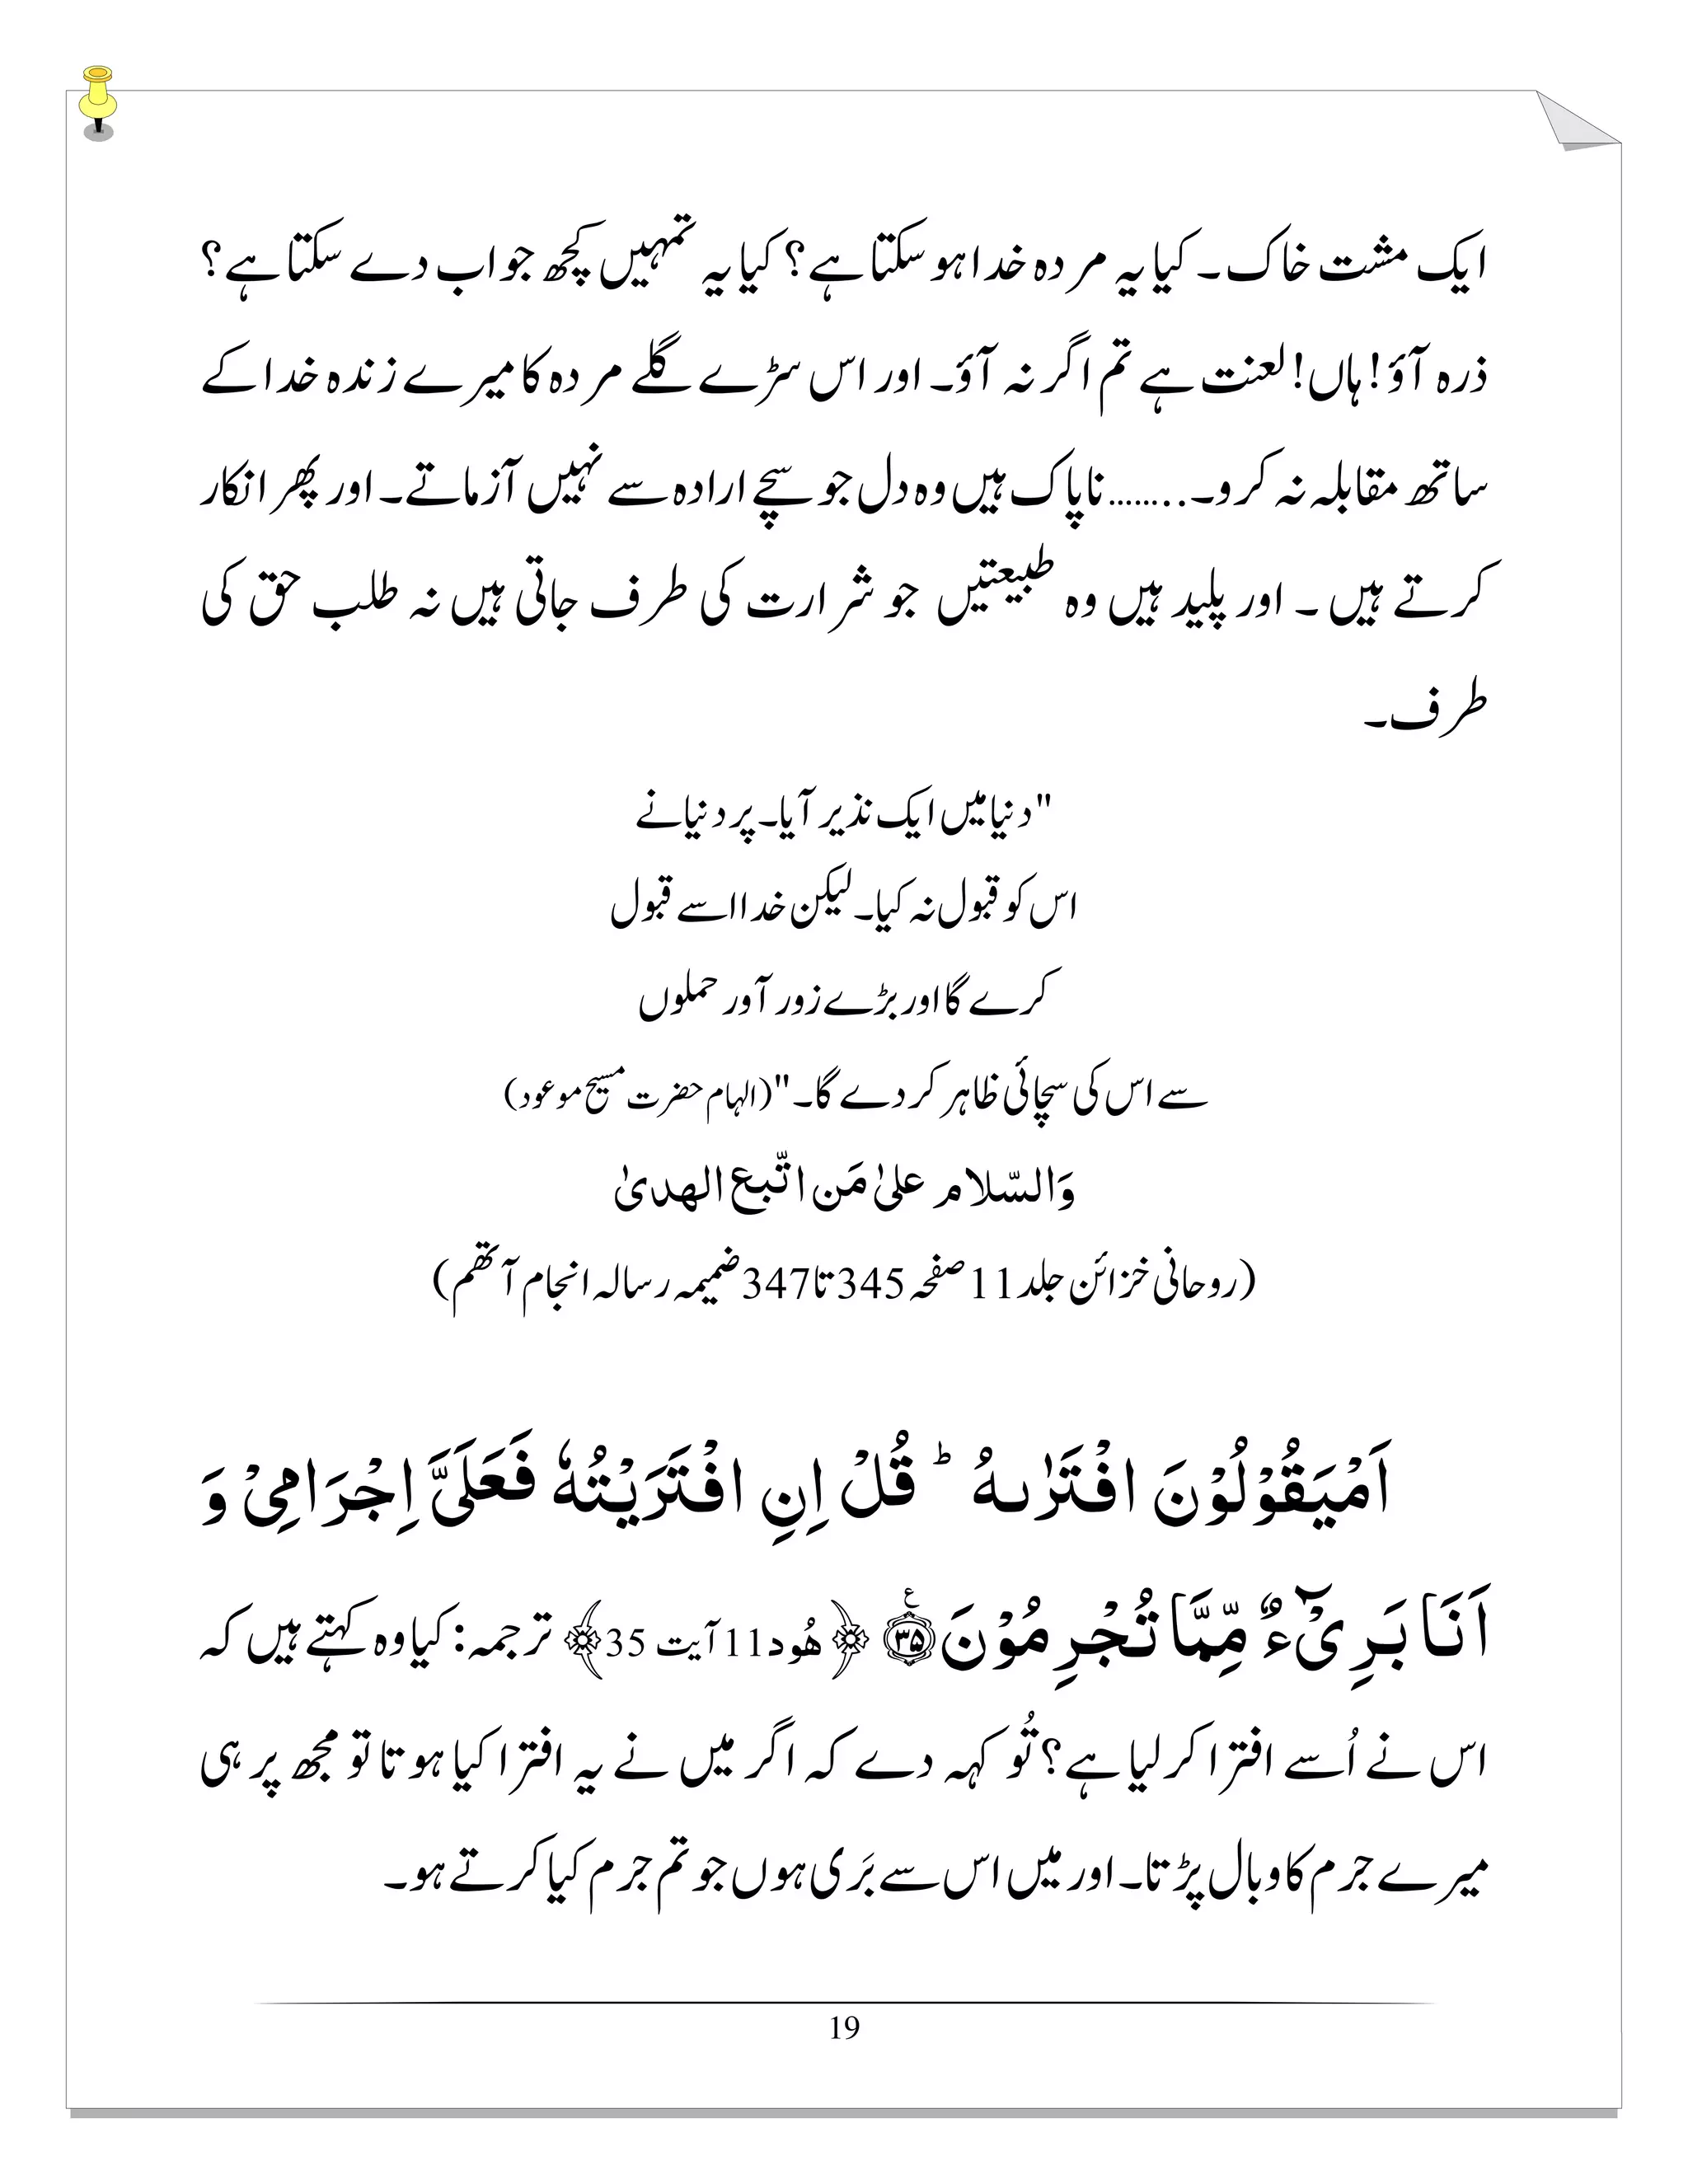 ایک مشت خاک۔ کیا یہ مردہ خدا ہو سکتا ہے؟ کیا یہ تمہیں کچھ جواب دے سکتا ہے؟
ذرہ آؤ! ہاں! لعنت ہے تم اگر نہ آؤ۔ اور اس سڑے گلے مردہ کا میرے زندہ خدا کے
ساتھ مقابلہ نہ کرو۔........ ناپاک ہیں وہ دل جو سچے ارادہ سے نہیں آزماتے۔ اور پھر انکار
کرتے ہیں ۔ اور پلید ہیں وہ طبیعتیں جو شرارت کی طرف جاتی ہیں نہ طلب حق کی
طرف۔
"دنیا میں ایک نذیر آیا۔ پر دنیا نے
اس کو قبول نہ کیا۔ لیکن خدا اسے قبول
کرے گا اور بڑے زور آور حملوں
سے اس کی سچائی ظاہر کر دے گا۔" (الہام حضرت مسیح موعود)
وَالسّلام علیٰ مَن اتّبع الھدیٰ
(روحانی خزائن جلد 11 صفحہ 345 تا 347 ضمیمہ رسالہ انجام آتھم)
اَمْیَقُوْلُوْنَ افْتَرٰىہُ ؕ قُلْ اِنِ افْتَرَیْتُہٗ فَعَلَیَّ اِجْرَامِیْ وَ
اَنَا بَرِیْٓءٌ مِّمَّا تُجْرِمُوْنَ ﴿۳۵﴾٪ ﴿ھُود 11 آیت 35﴾ ترجمہ: کیا وہ کہتے ہیں کہ
اس نے اُسے افترا کر لیا ہے؟ تُو کہہ دے کہ اگر میں نے یہ افترا کیا ہوتا تو مجھ پر ہی
میرے جرم کا وبال پڑتا۔ اور میں اس سے بَری ہوں جو تم جرم کیا کرتے ہو۔
19